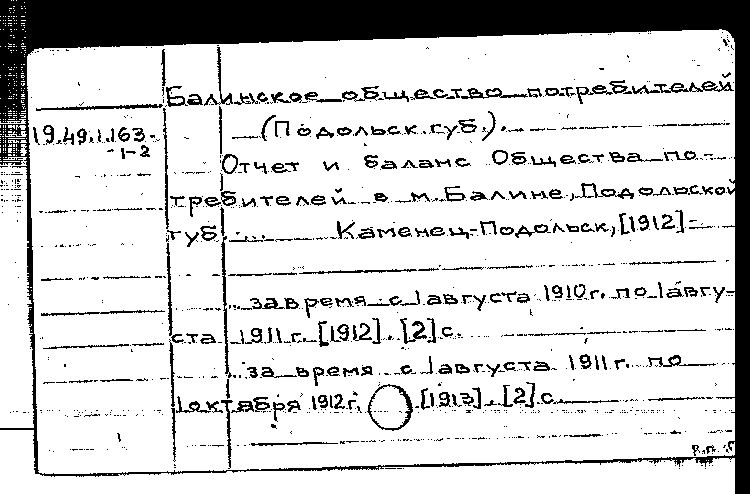 Балинское общество потребителей
19.49.1.163-
-1-2
(Подольск.губ.).
Отчет и баланс Общества по-
требителей в м.Балине,Подольской
губ. ... Каменец-Подольск,[1912]-
.. за время с 1 августа 1910г. по 1 авгу-
ста 1911 г. [1912]. [2] с.
.. за время с 1 августа 1911 г. по
1 октября 1912 г. [1913]. [2] с.